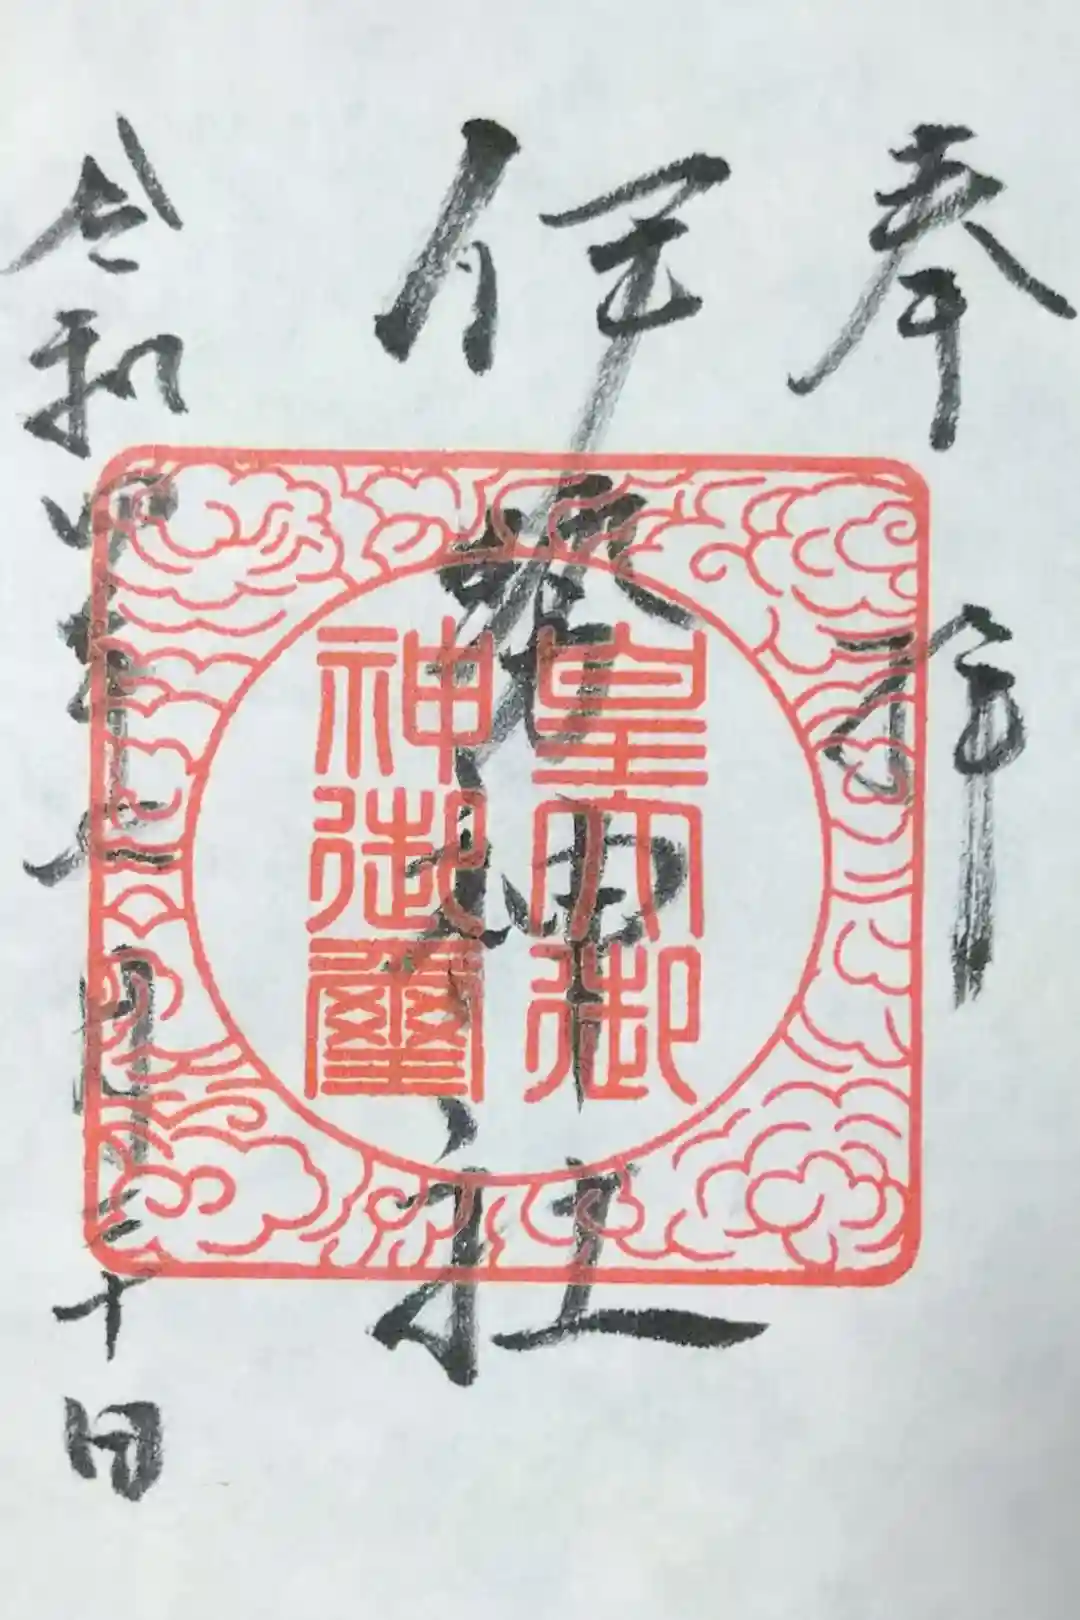 奉拝
伊勢神社
皇大御
神御璽
令和四年 月三十日